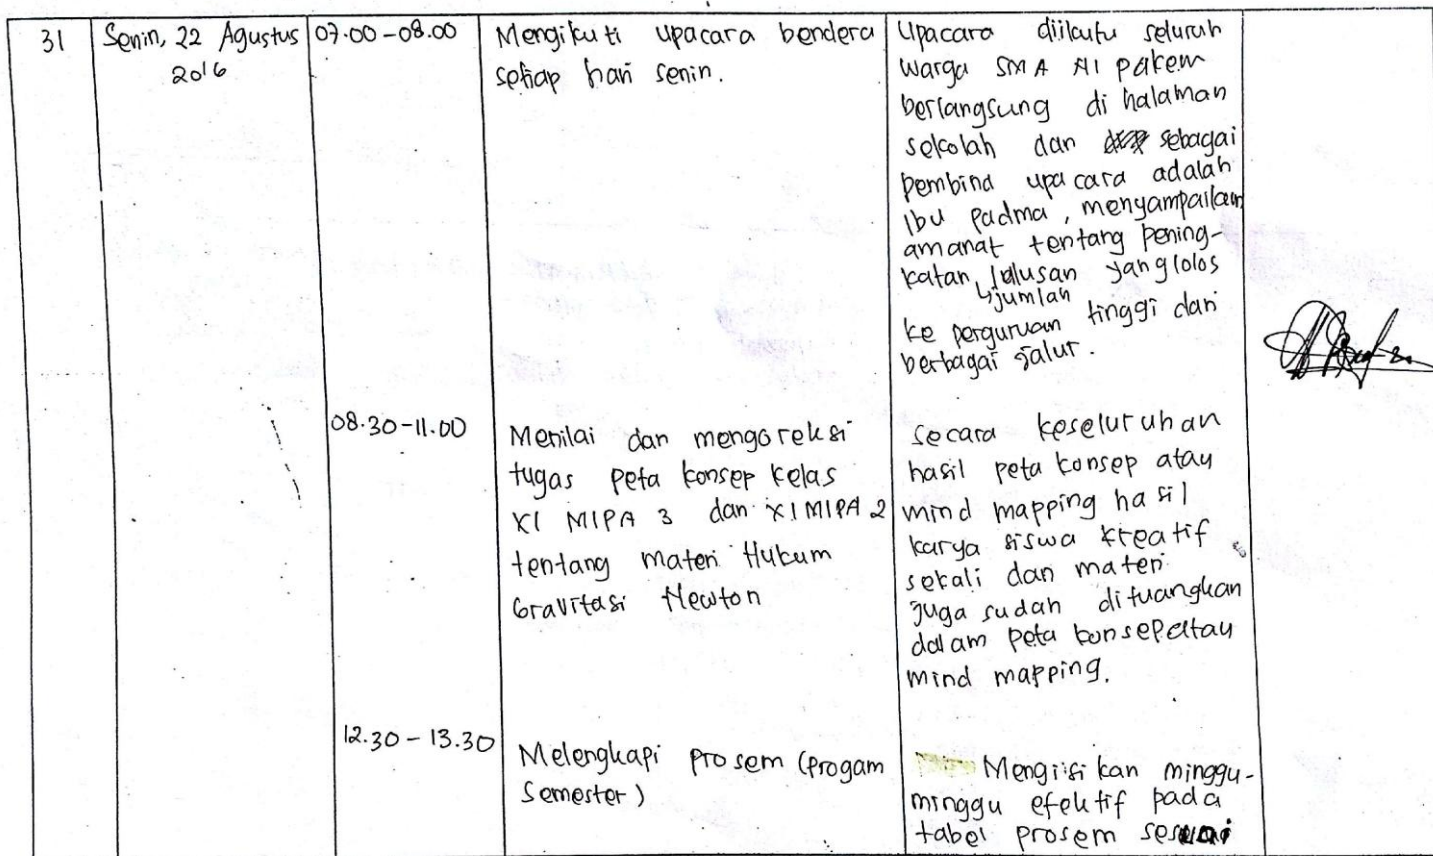 31
Senin, 22 Agustus
2016
07.00-08.00
Mengikuti upacara bendera
setiap hari senin.
Upacara diikuti seluruh
warga SMA N1 pakem
berlangsung di halaman
sekolah dan sebagai
pembina upacara adalah
ibu Padma, menyampaikan
amanat tentang pening-
katan lulusan yang lolos
jumlah
ke perguruan tinggi dari
berbagai jalur.
08.30-11.00
Menilai dan mengoreksi
tugas peta konsep kelas
XI MIPA 3 dan XI MIPA 2
tentang materi Hukum
Gravitasi Newton
secara keseluruhan
hasil peta konsep atau
mind mapping hasil
karya siswa kreatif
sekali dan materi
juga sudah dituangkan
dalam peta konsep atau
mind mapping.
12.30-13.30
Melengkapi prosem (Progam
Semester)
Mengisikan minggu-
minggu efektif pada
tabel prosem sesuai